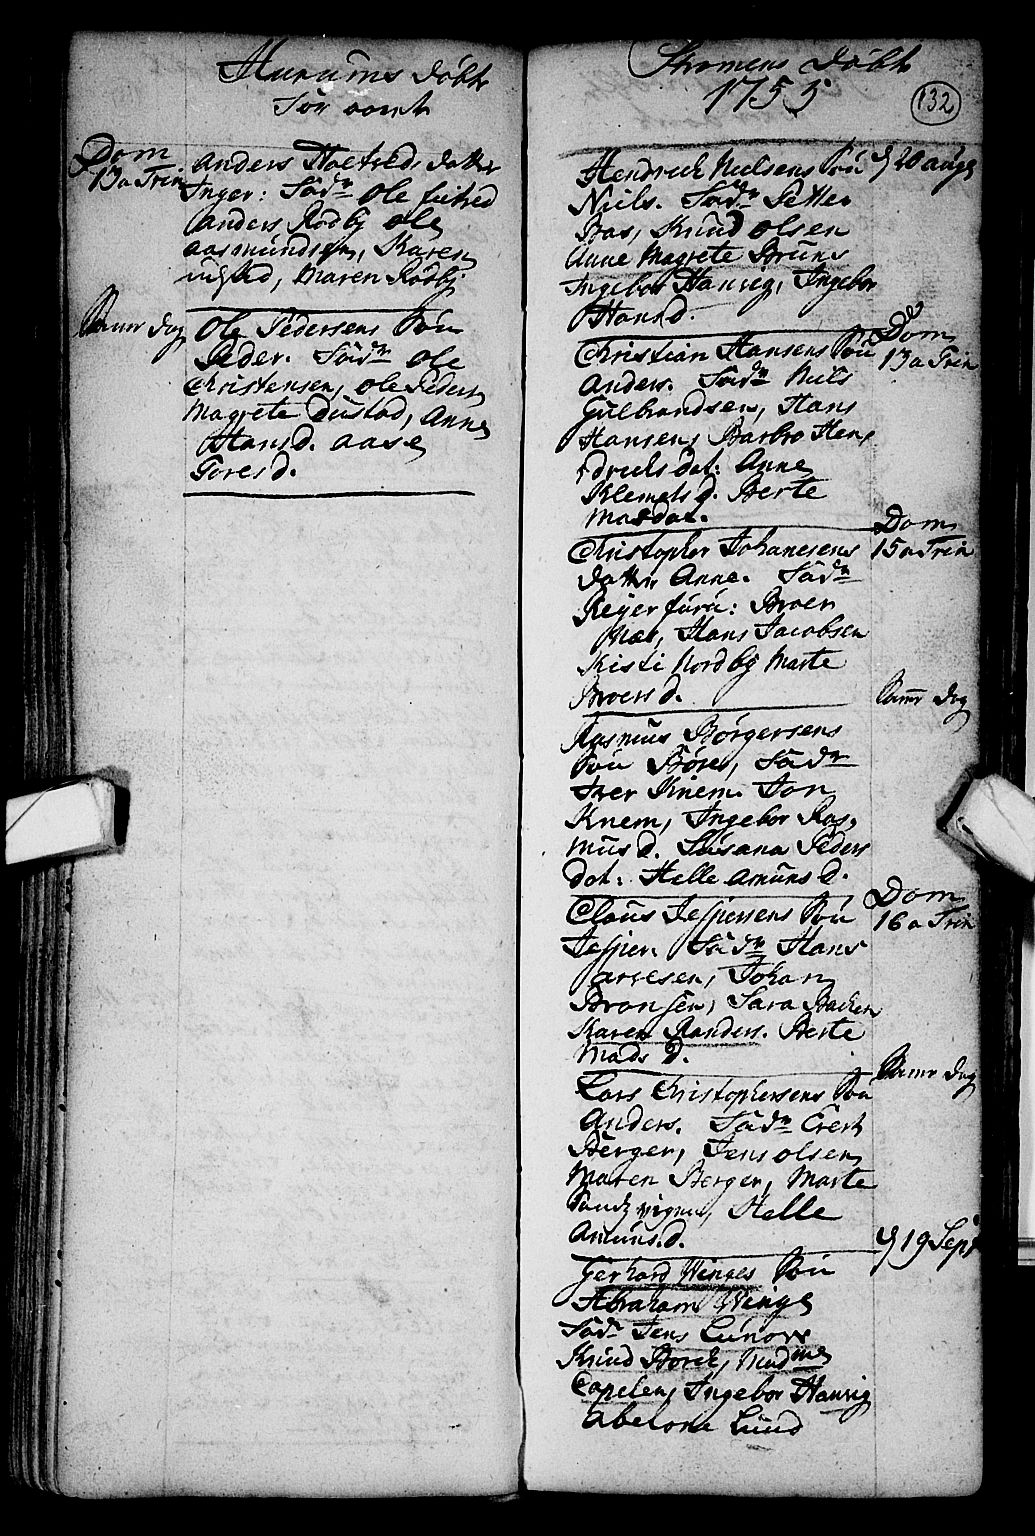 Hurums Döbt
Dom
13 a Trin
Anders Datter
Inger: Fadr Ole
Anders Rödby Ole
Aasmundsen, Karen
Maren Rödby
Samr Dag
Ole Pedersens Sön
Peder. Fadr Ole
Christensen, Ole Peders
Magrete Anne
Hansd. Aase
Toresd.
Stromens Döbt
1755
132
Hendrick Nielsens Sön
Niels. Fadr Petter
Bas, Knud Olsen
Anne Magrete Bruns
Ingebor Hansig, Ingebor
Hansd.
d 20 Augs
Christian Hansens Sön
Anders. Fadr Niels
Gulbrandsen, Hans
Hansen, Barbro Hen
drichsdat: Anne
Klemetsd. Berte
Masdat.
Dom
13 a Trin
Christopher Johanesens
Datter Anne. Fadr
Reyer Broer
Hans Jacobsen
Kisti Nordby Marte
Broersd.
Dom
15 a Trin
Rasmus Börgersens
Sön Börre, Fadr
Iver Knem. Jon
Knem, Ingebor Ras
musd. Susana Peders
dot: Helle Amunsd.
Samr Dag
Claus Jespersens Sön
Jesper. Fadr Hans
Johan
Bronsen, Sara Backen
Karen Randers. Berte
Mads d.
Dom
16 a Trin
Lars Christophersens Sön
Anders. Fadr Erert
Berger, Jens Olsen
Maren Berger, Marte
Helle
Amunsd.
Samr Dag
Gerhard Winges Sön
Abraham Winge
Fadr Jens Lunow
Knud Borck, Madme
Capelen, Ingebor Hansig
Abelona Lund
d 19 Sept